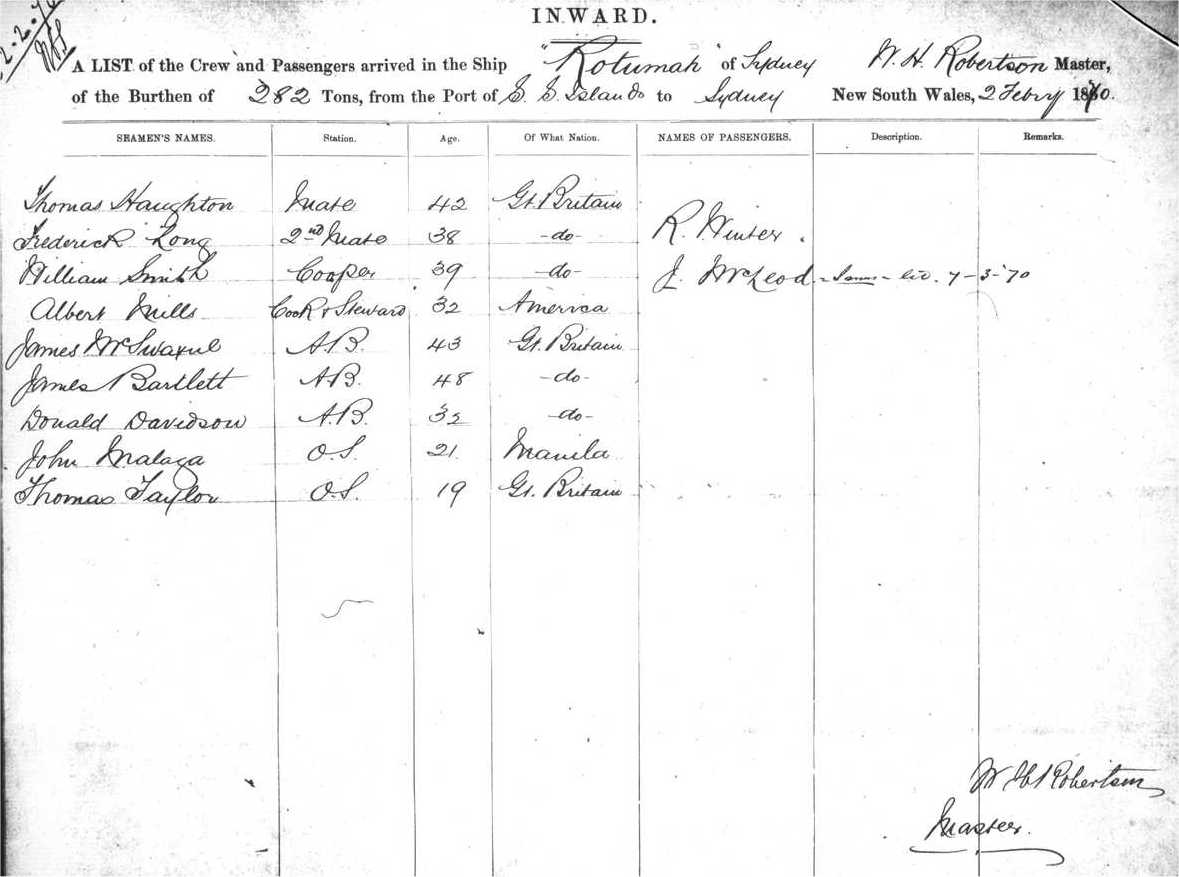 2.2.70
INWARD.
A LIST of the Crew and Passengers arrived in the Ship "Rotumah" of Sydney W. H. Robertson Master,
of the Burthen of 282 Tons, from the Port of S. S. Islands to Sydney New South Wales, 2 Febry 1870.
SEAMEN'S NAMES. Station. Age. Of What Nation. NAMES OF PASSENGERS. Description. Remarks.
Thomas Haughton Mate 42 Gt. Britain
Frederick Long 2nd Mate 38 -do- R. Winter.
William Smith Cooper 39 -do- J. McLeod 7-3-70
Albert Mills Cook & Steward 32 America
James McSwayne A.B. 43 Gt. Britain
James Bartlett A.B. 48 -do-
Donald Davidson A.B. 32 -do-
John Malaga O.S. 21 Manila
Thomas Taylor O.S. 19 Gt. Britain
W H Robertson
Master.